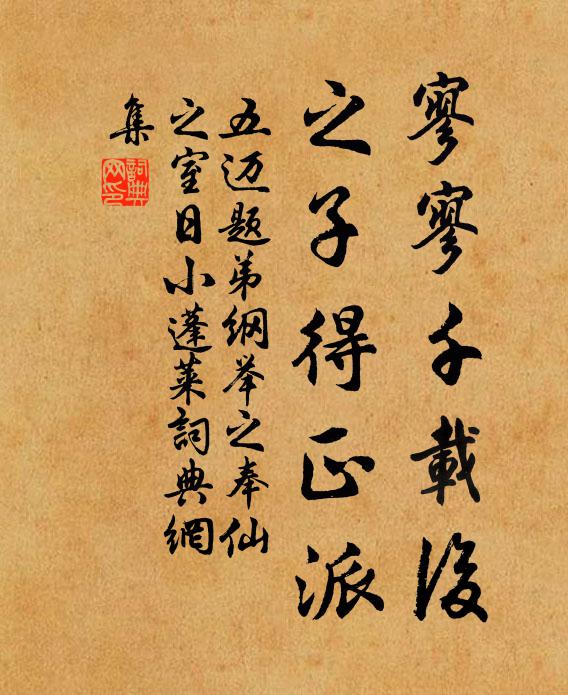 寥寥千載後
之子得正派
五迈题弟綱举之奉仙
之室日小蓬莱詞典網
集
詞典网印